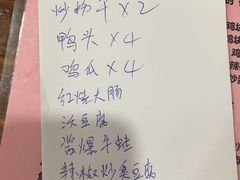 炒粉干×2
鸭头×4
鸡爪×4
红烧大肠
沃豆腐
酱爆牛蛙
辣椒炒臭豆腐
鸡
辣
炒